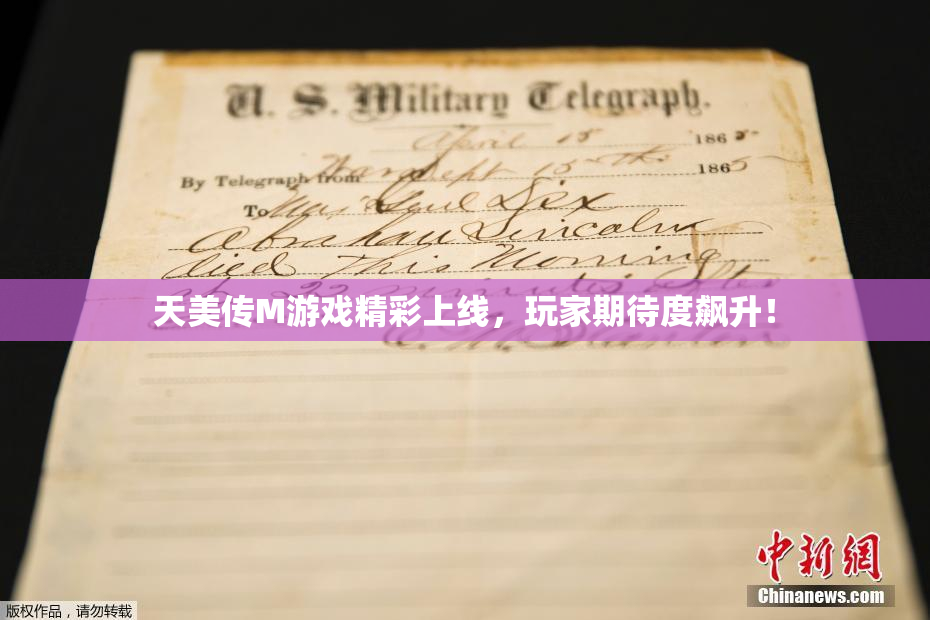 U. S. Military Telegraph.
April 15 1865
By Telegraph from War Dept 15th 1865
To Maj Genl Dix
Abraham Lincoln
died This Morning
at 22 minutes after
天美传M游戏精彩上线，玩家期待度飙升！
中新网
Chinanews.com
版权作品，请勿转载